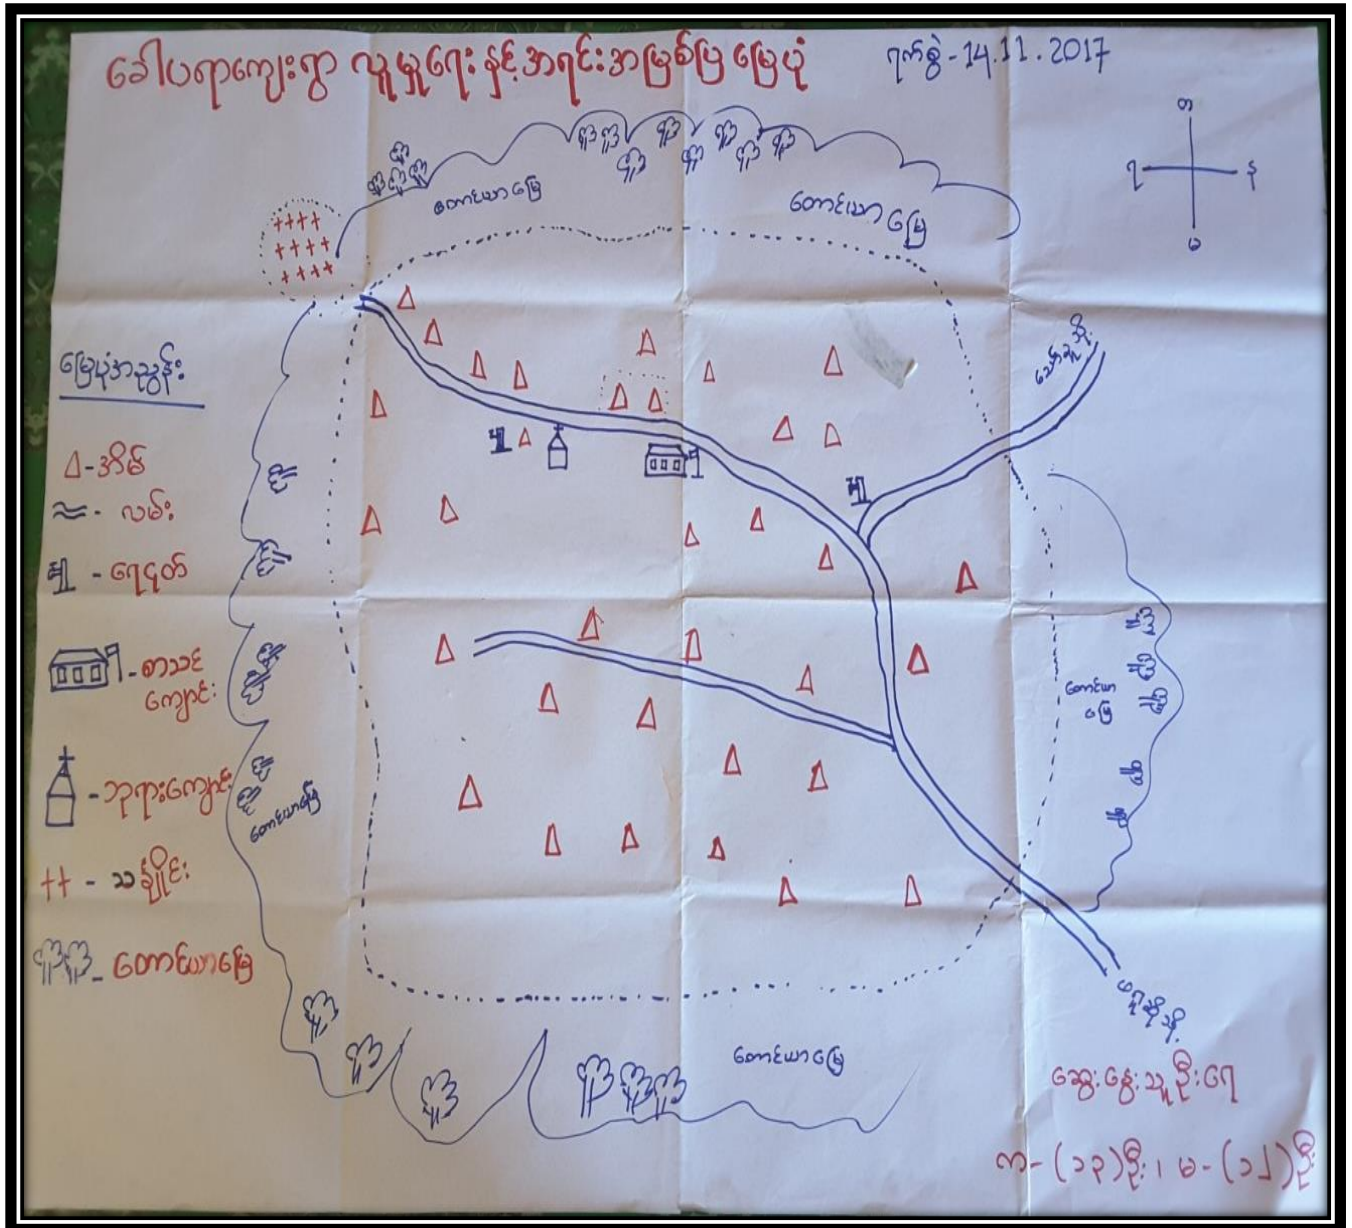 ခေါပရာကျေးရွာ လူမှုရေး နှင့် အရင်းအမြစ်ပြ မြေပုံ
ရက်စွဲ - 14.11.2017
တ
ရ
န
မ
တောင်ယာမြေ
တောင်ယာမြေ
မြေပုံအညွှန်း
သော်သူသို့
- အိမ်
- လမ်း
- ရေငုတ်
- စာသင်
ကျောင်း
- ဘုရားကျောင်း
- သင်္ချိုင်း
- တောင်ယာမြေ
တောင်ယာမြေ
တောင်ယာ
မြေ
တောင်ယာမြေ
ဆွေးနွေးသူဦးရေ
က - (၁၃)ဦး၊ မ - (၁၂)ဦး